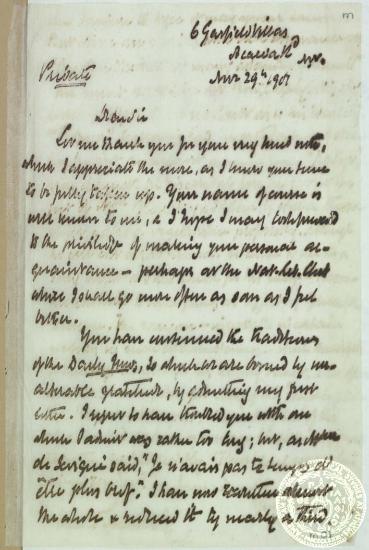 6 Garfield Villas
Acacia Rd
Private
Nov 29th 1901
Dear Sir
Let me thank you for your very kind note,
which I appreciate the more, as I know your time
to be fully taken up. Your name of course is
well known to me, & I hope I may look forward
to the privilege of making your personal ac-
quaintance – perhaps at the Nat. Lib. Club
where I shall go more often as soon as I feel
better.
You have continued the traditions
of the Daily News, to which we are bound by un-
alterable gratitude, by admitting my first
letter. I regret to have troubled you with one
which I admit was rather too long; but, as Mme
de Sévigné said, "Je n'avais pas le temps d'
être plus bref". I have now rewritten almost
the whole & reduced it by nearly a third.